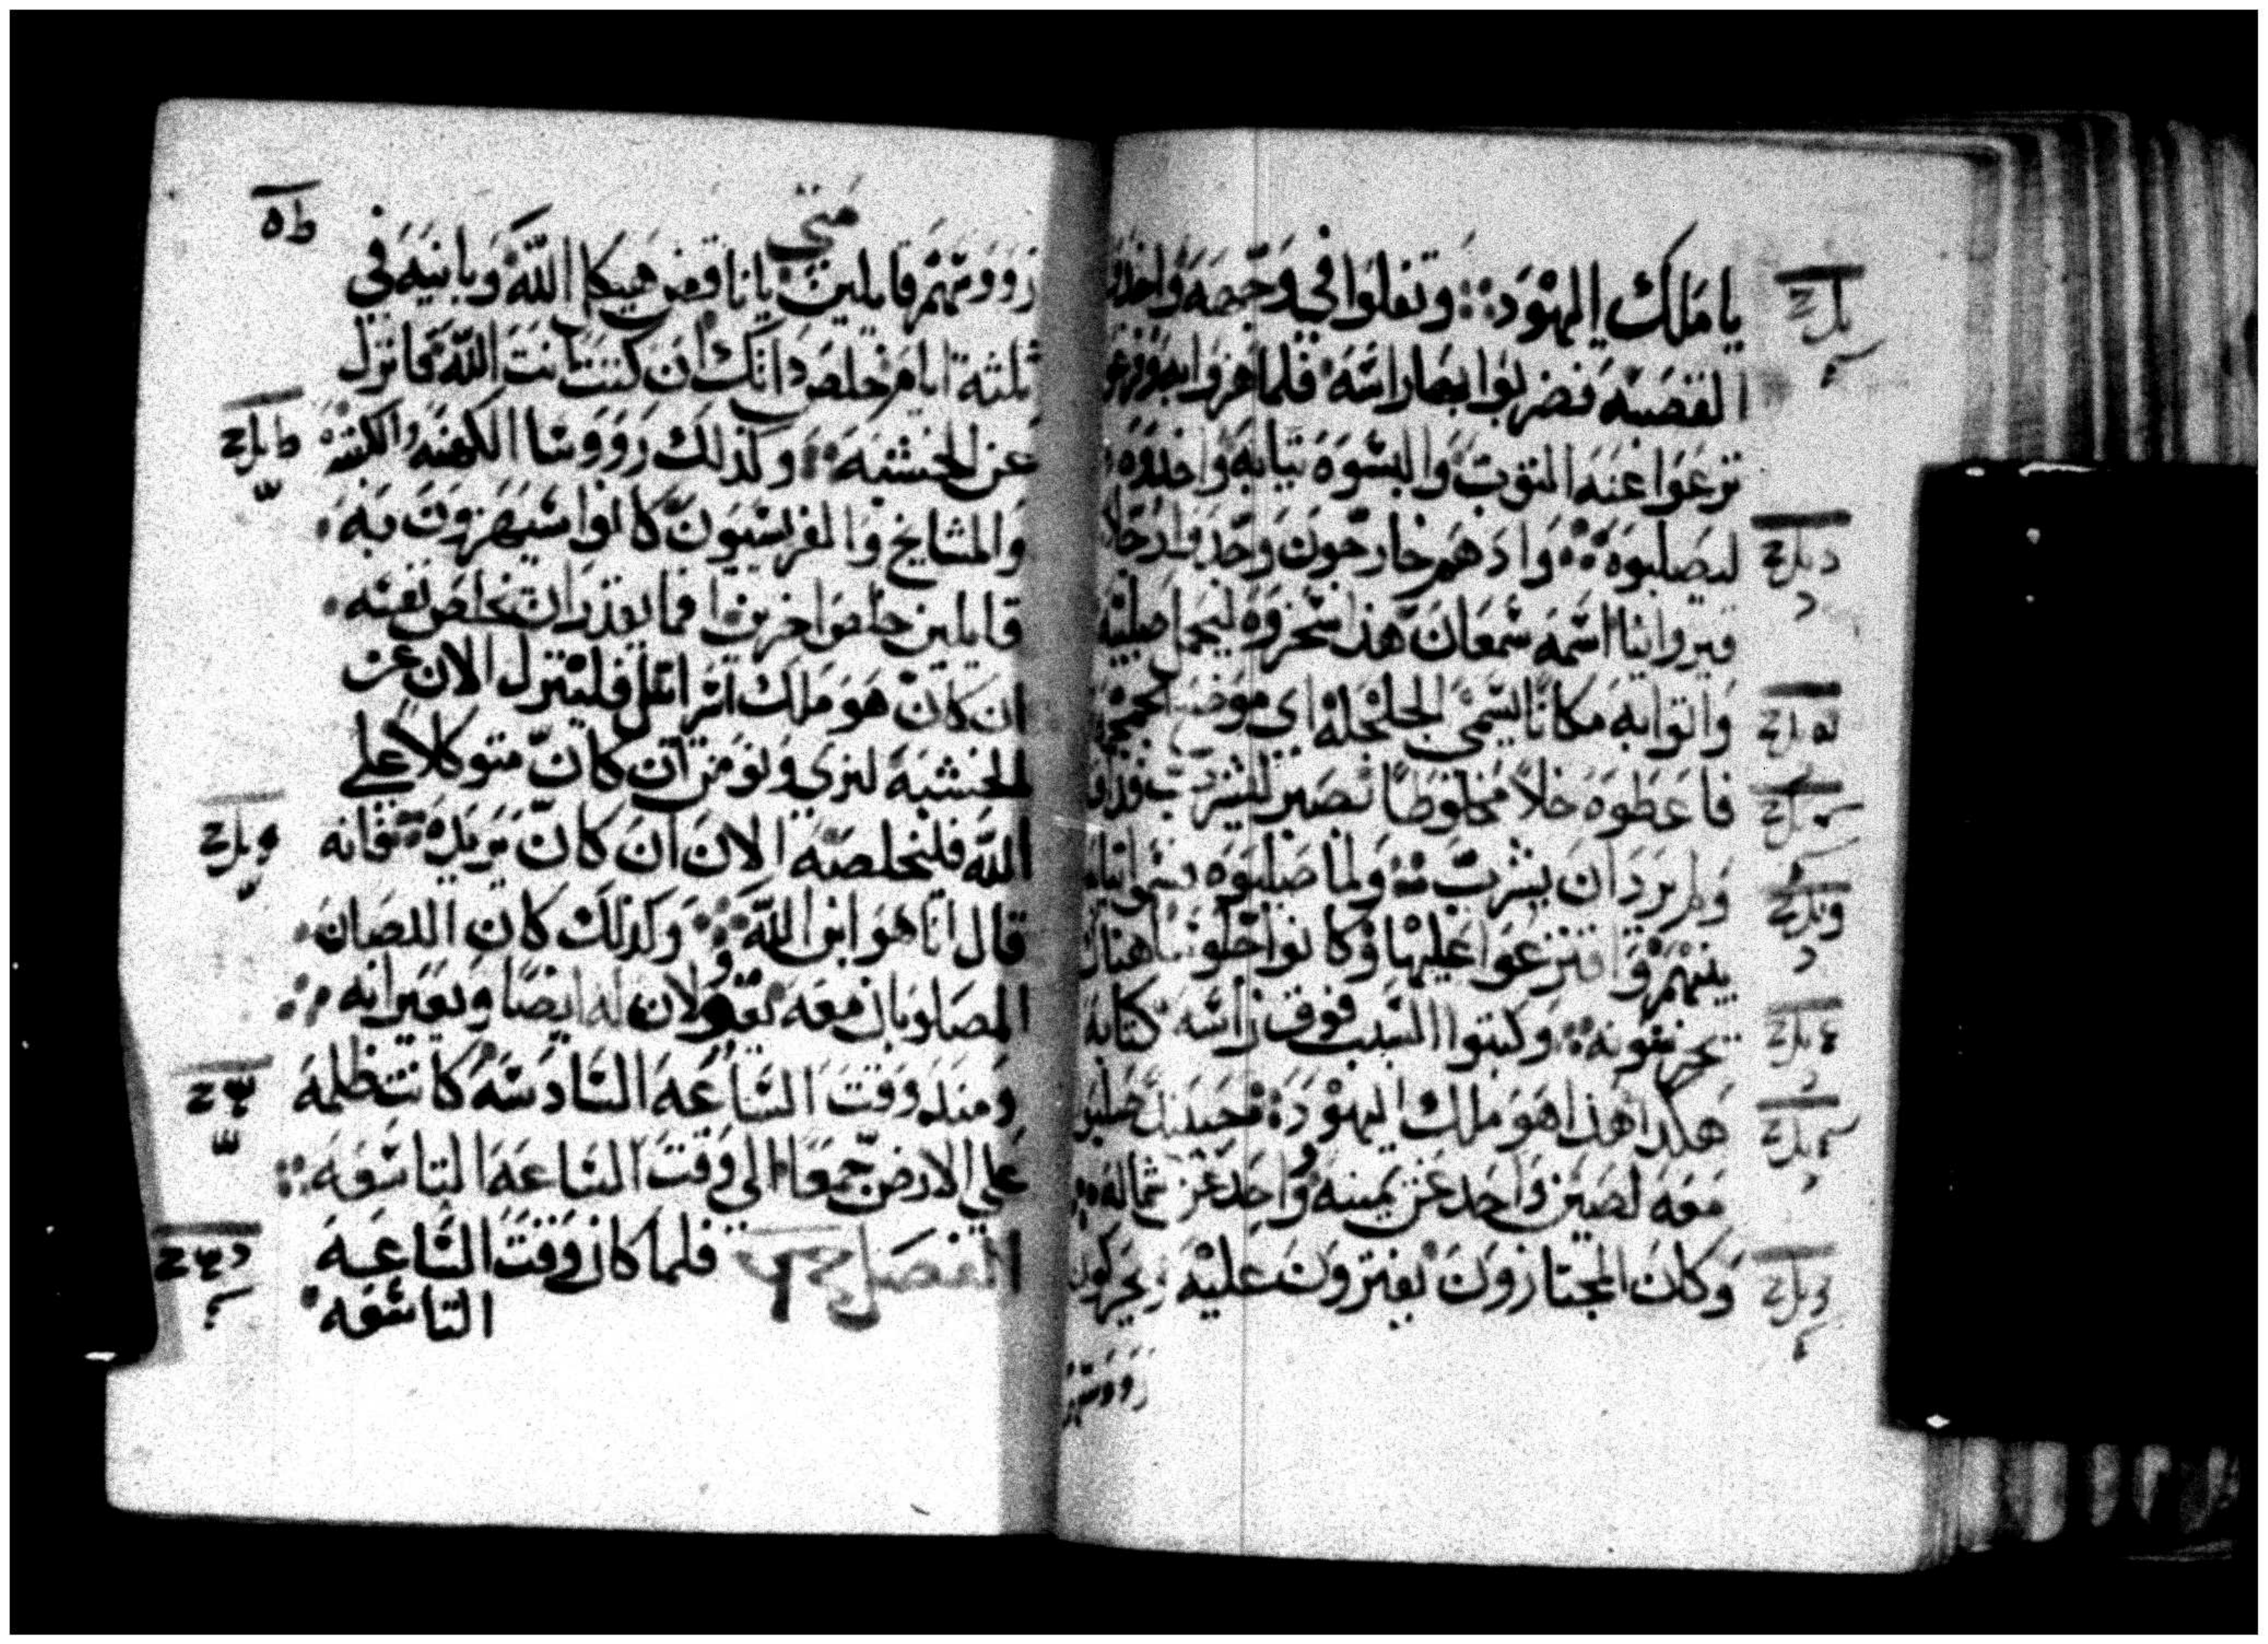 يا ملك اليهود وتفلوا في وجهه واخذوا
القصبه فضربوا بها راسه فلما هزوا به
نزعوا عنه الثوب والبسوه ثيابه واخذوه
ليصلبوه واذ هم خارجون وجدوا رجلا
قيروانيا اسمه سمعان هذا سخروه ليحمل صليبه
واتوا به مكانا يسمي الجلجله اي موضع الجمجمه
فاعطوه خلا مخلوطا بصبر ليشرب فذاق
ولم يرد ان يشرب ولما صلبوه قسموا ثيابه
بينهم واقترعوا عليها وكانوا جلوسا هناك
يحرسونه وكتبوا السبب فوق راسه كتابه
هكذا هذا هو ملك اليهود فحينئذ صلبوا
معه لصين واحد عن يمينه وواحد عن شماله
وكان المجتازون يفترون عليه ويحركون
رووسهم
متي
رووسهم قايلين يا ناقض هيكل الله وبانيه في
ثلثة ايام خلص ذاتك ان كنت ابن الله فانزل
عن الخشبه وكذلك رووسا الكهنه والكتبه
والمشايخ والفريسيون كانوا يستهزون به
قايلين خلص اخرين فما يقدر ان يخلص نفسه
ان كان هو ملك اسرائيل فلينزل الان عن
الخشبه لنري ونومن ان كان متوكلا علي
الله فليخلصه الان ان كان يريده فانه
قال انا هو ابن الله وكذلك كان اللصان
المصلوبان معه يقولان له ايضا ويعيرانه
ومنذ وقت الساعه السادسه كانت ظلمه
علي الارض جمعا الي وقت الساعه التاسعه
الفصل فلما كان وقت الساعه
التاسعه